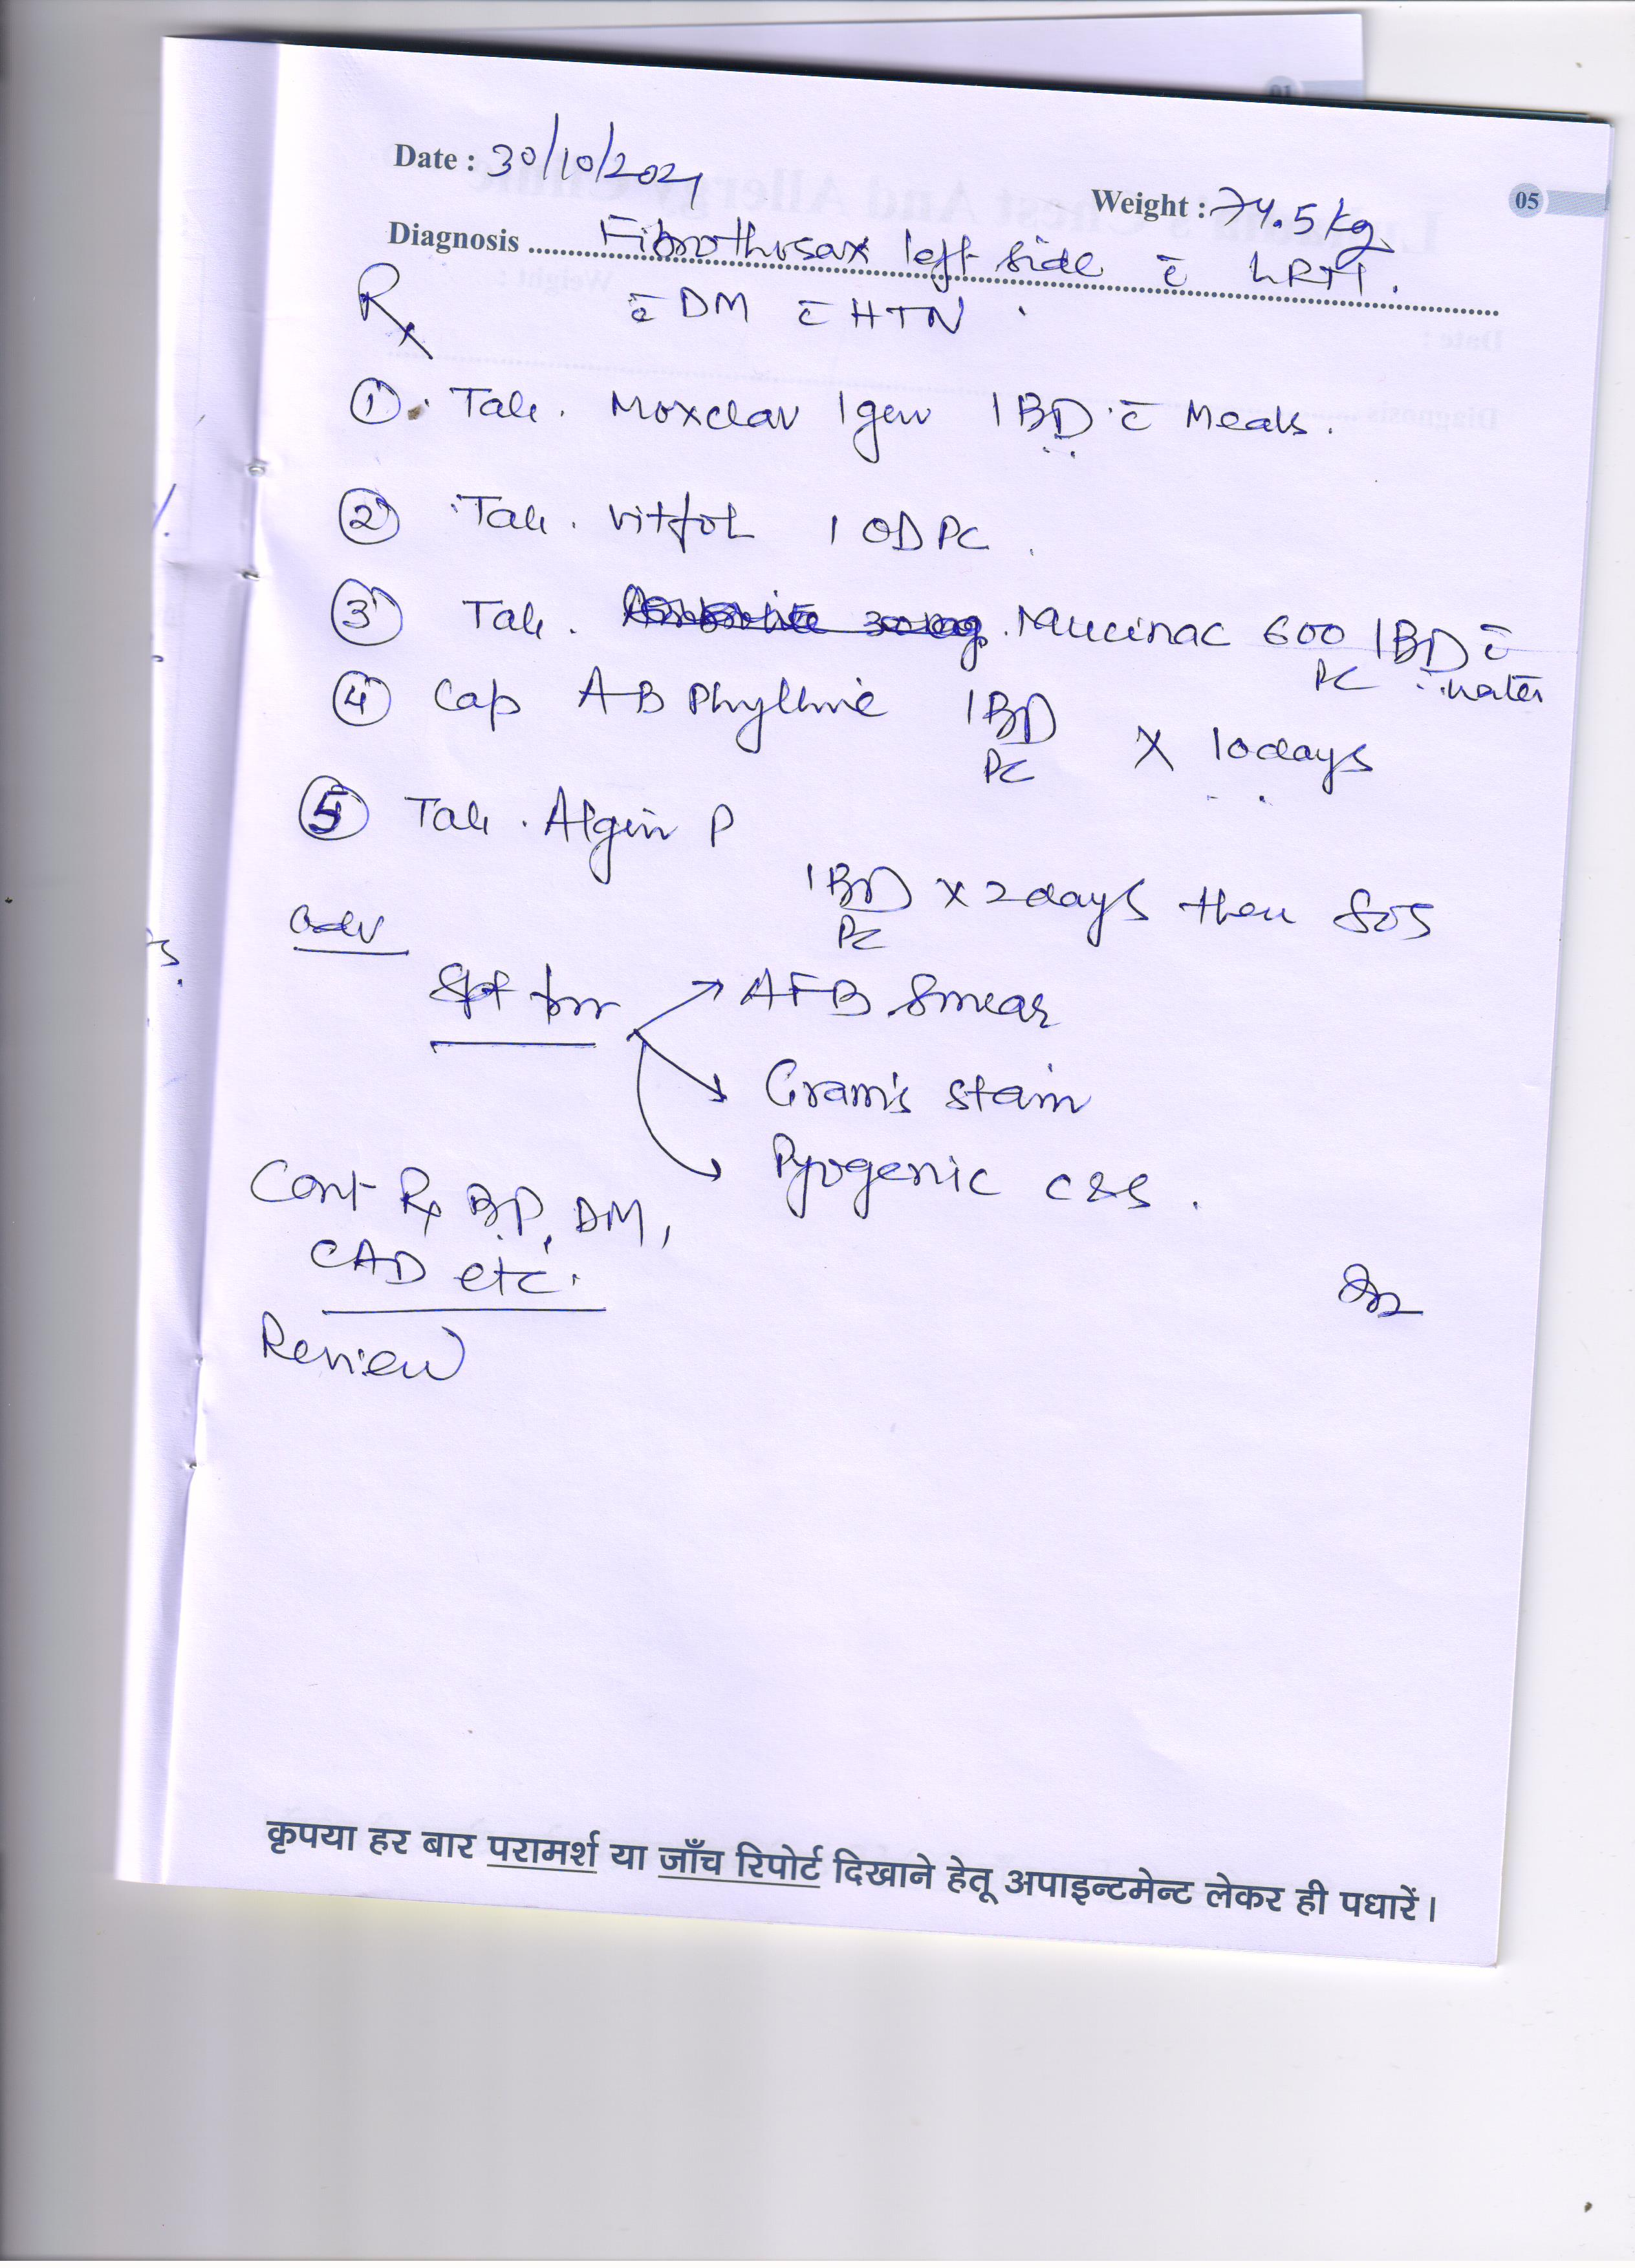 05
Date : 30/10/2021
Weight : 74.5 kg
Diagnosis ........ Fibrothorax left side c̄ LRTI.
Rx c̄ DM c̄ HTN .
① Tab. Moxclav 1gm 1 BD c̄ Meals.
② Tab. Vitfol 1 OD PC .
③ Tab. Mucinac 600 1 BD c̄
PC water
④ Cap AB Phylline 1 BD
PC X 10 days
⑤ Tab. Algin P
1 BD X 2 days then SOS
PC
Adv
Spt for → AFB Smear
→ Gram's stain
→ Pyogenic C&S .
Cont Rx BP, DM,
CAD etc.
Review
कृपया हर बार परामर्श या जाँच रिपोर्ट दिखाने हेतू अपाइन्टमेन्ट लेकर ही पधारें।